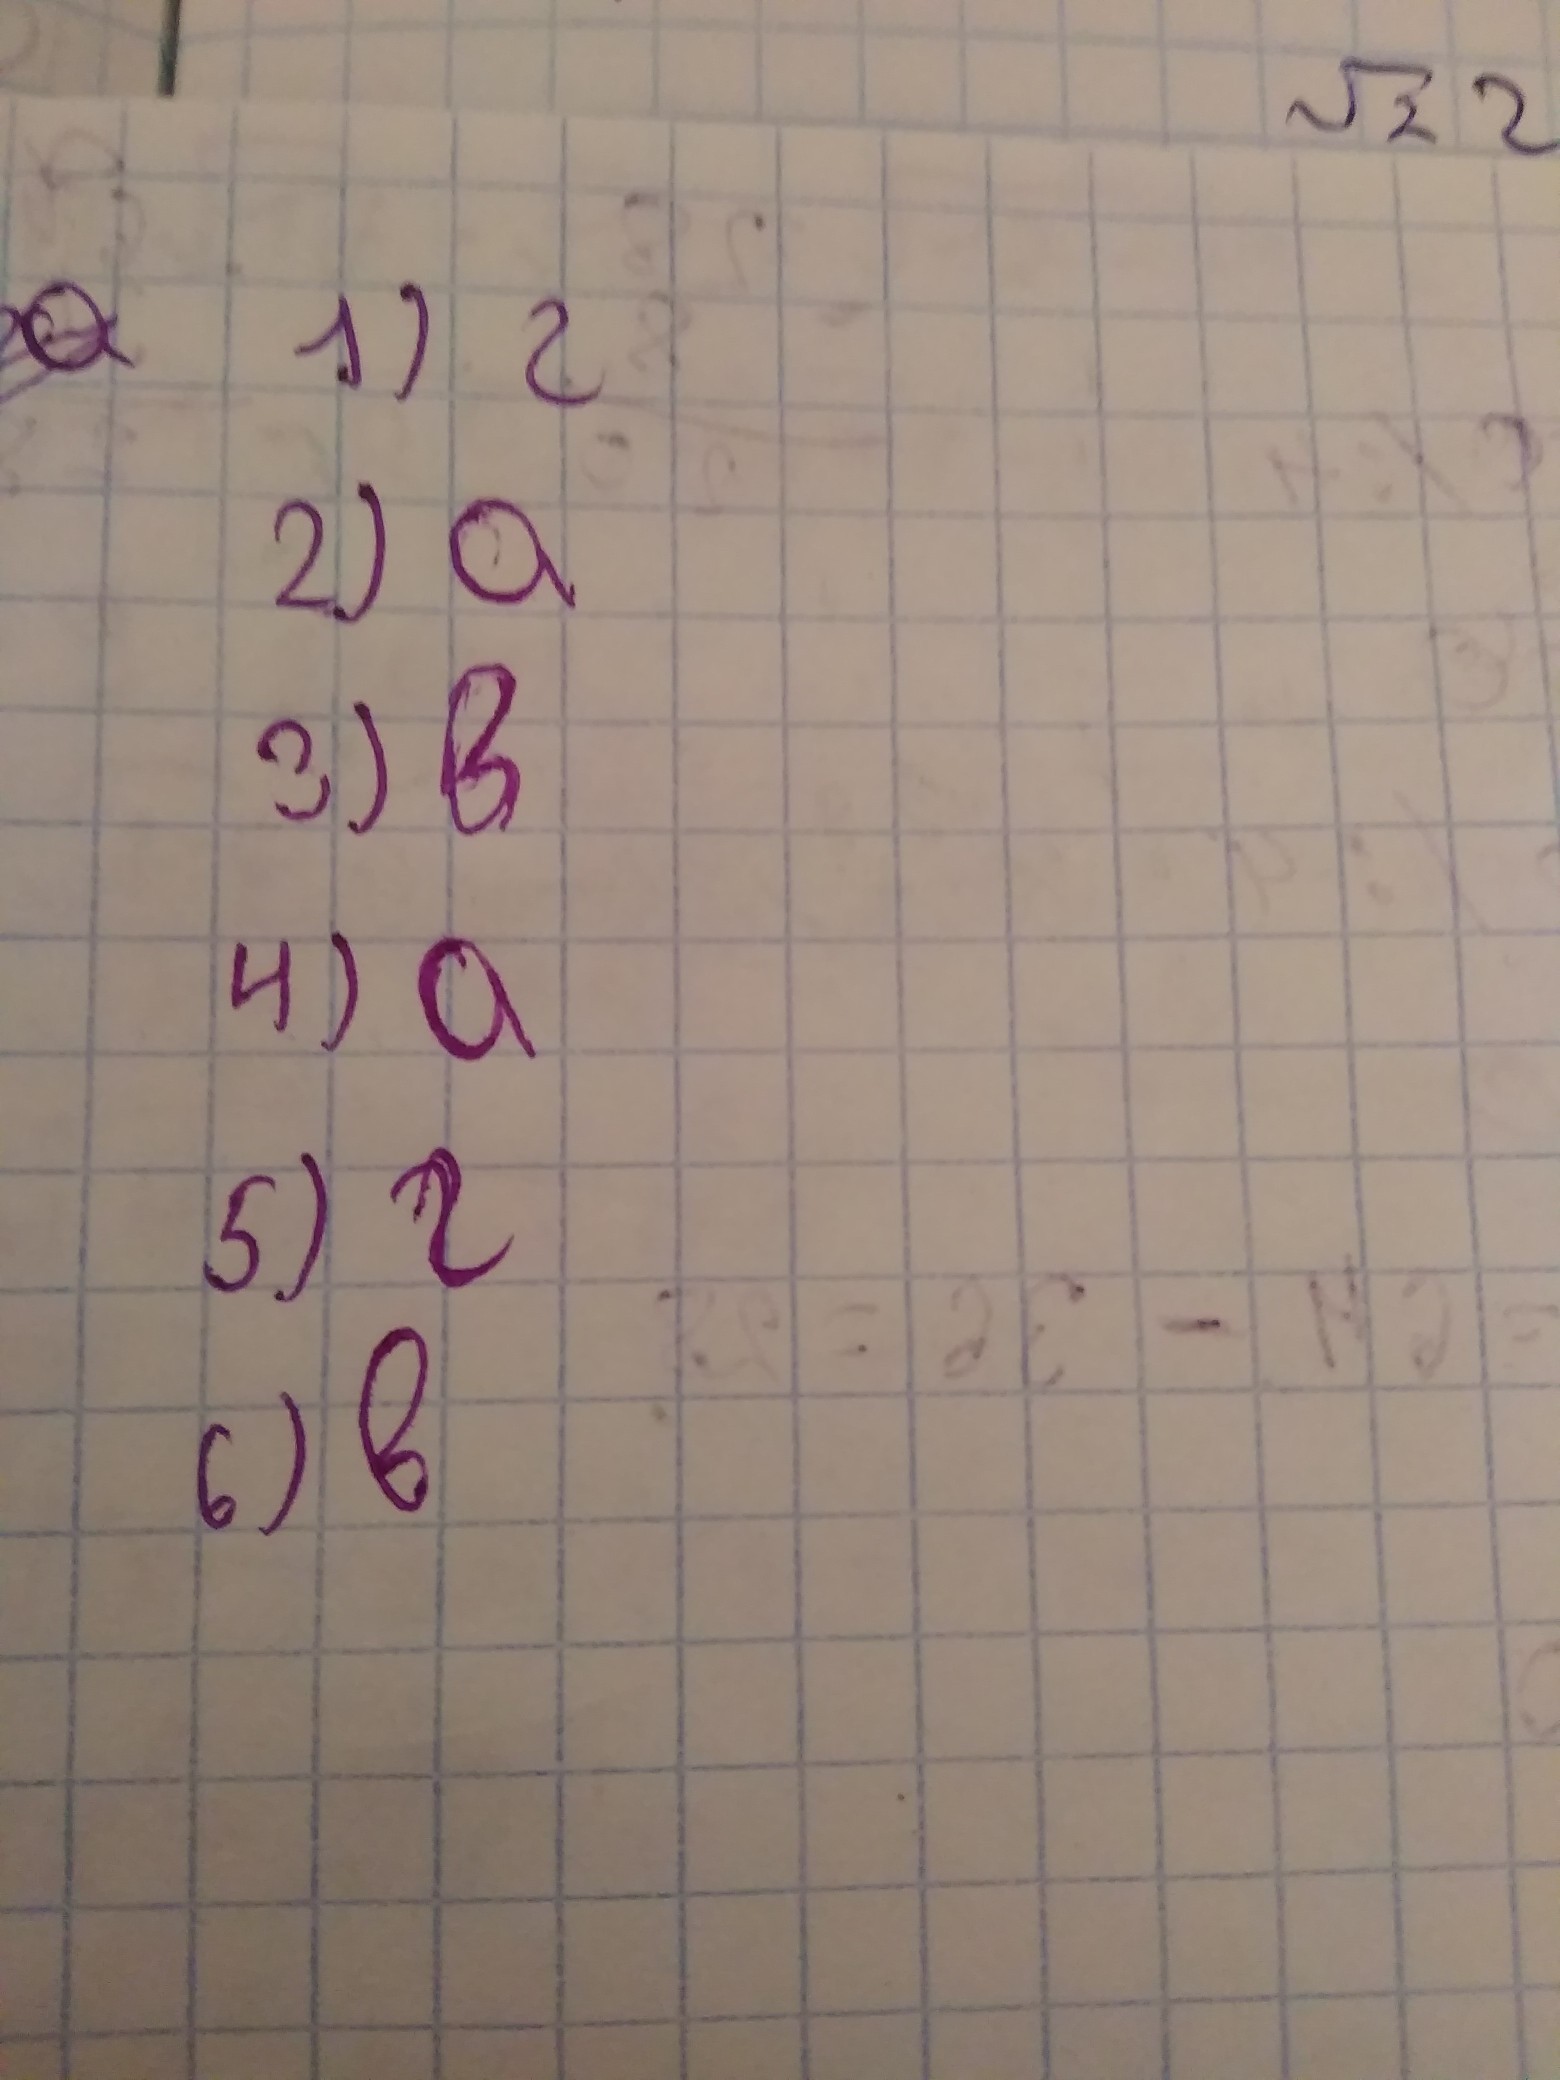 √2 2
1) г
2) а
3) в
4) а
5) г
6) в